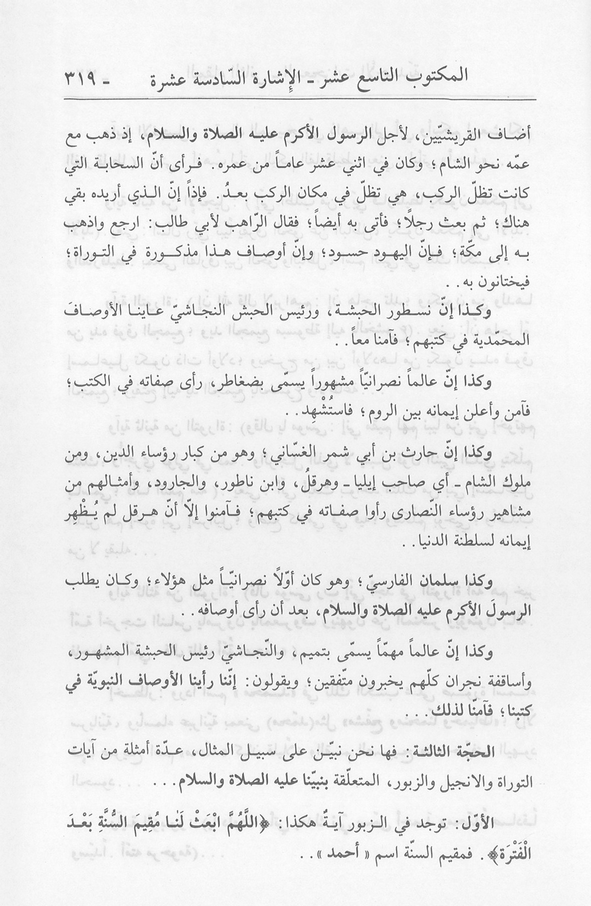 المكتوب التاسع عشر ـ الإشارة السّادسة عشرة ـ ٣١٩
أضاف القريشيّين، لأجل الرسول الأكرم عليه الصلاة والسلام، إذ ذهب مع
عمّه نحو الشام؛ وكان في اثني عشر عاماً من عمره. فرأى أنّ السحابة التي
كانت تظلّ الركب، هي تظلّ في مكان الركب بعدُ. فإذاً إنّ الذي أريده بقي
هناك؛ ثم بعث رجلًا؛ فأتى به أيضاً؛ فقال الرّاهب لأبي طالب: ارجع واذهب
به إلى مكّة؛ فإنّ اليهود حسود؛ وإنّ أوصاف هذا مذكورة في التوراة؛
فيختانون به..
وكذا إنّ نسطور الحبشة، ورئيس الحبش النجاشيّ عاينا الأوصافَ
المحمّدية في كتبهم؛ فآمنا معاً..
وكذا إنّ عالماً نصرانيّاً مشهوراً يسمّى بضغاطر، رأى صفاته في الكتب؛
فآمن وأعلن إيمانه بين الروم؛ فاستُشْهِد..
وكذا إنّ حارث بن أبي شمر الغسّاني؛ وهو من كبار رؤساء الدين، ومن
ملوك الشام ـ أي صاحب إيليا ـ وهرقلُ، وابن ناطور، والجارود، وأمثالهم من
مشاهير رؤساء النّصارى رأوا صفاته في كتبهم؛ فآمنوا إلّا أنّ هرقل لم يُظْهِر
إيمانه لسلطنة الدنيا..
وكذا سلمان الفارسيّ؛ وهو كان أوّلًا نصرانيّاً مثل هؤلاء؛ وكان يطلب
الرسولَ الأكرم عليه الصلاة والسلام، بعد أن رأى أوصافه..
وكذا إنّ عالماً مهمّاً يسمّى بتميم، والنّجاشيّ رئيس الحبشة المشهور،
وأساقفة نجران كلّهم يخبرون متّفقين؛ ويقولون: إنّنا رأينا الأوصاف النبويّة في
كتبنا؛ فآمنّا لذلك...
الحجّة الثالثة: فها نحن نبيّن على سبيل المثال، عدّة أمثلة من آيات
التوراة والانجيل والزبور، المتعلّقة بنبيّنا عليه الصلاة والسلام...
الأوّل: توجد في الزبور آيةٌ هكذا: ﴿اللَّهُمَّ ابْعَثْ لَنا مُقِيمَ السُّنَّةِ بَعْدَ
الْفَتْرَةِ﴾. فمقيم السنّة اسم «أحمد»..